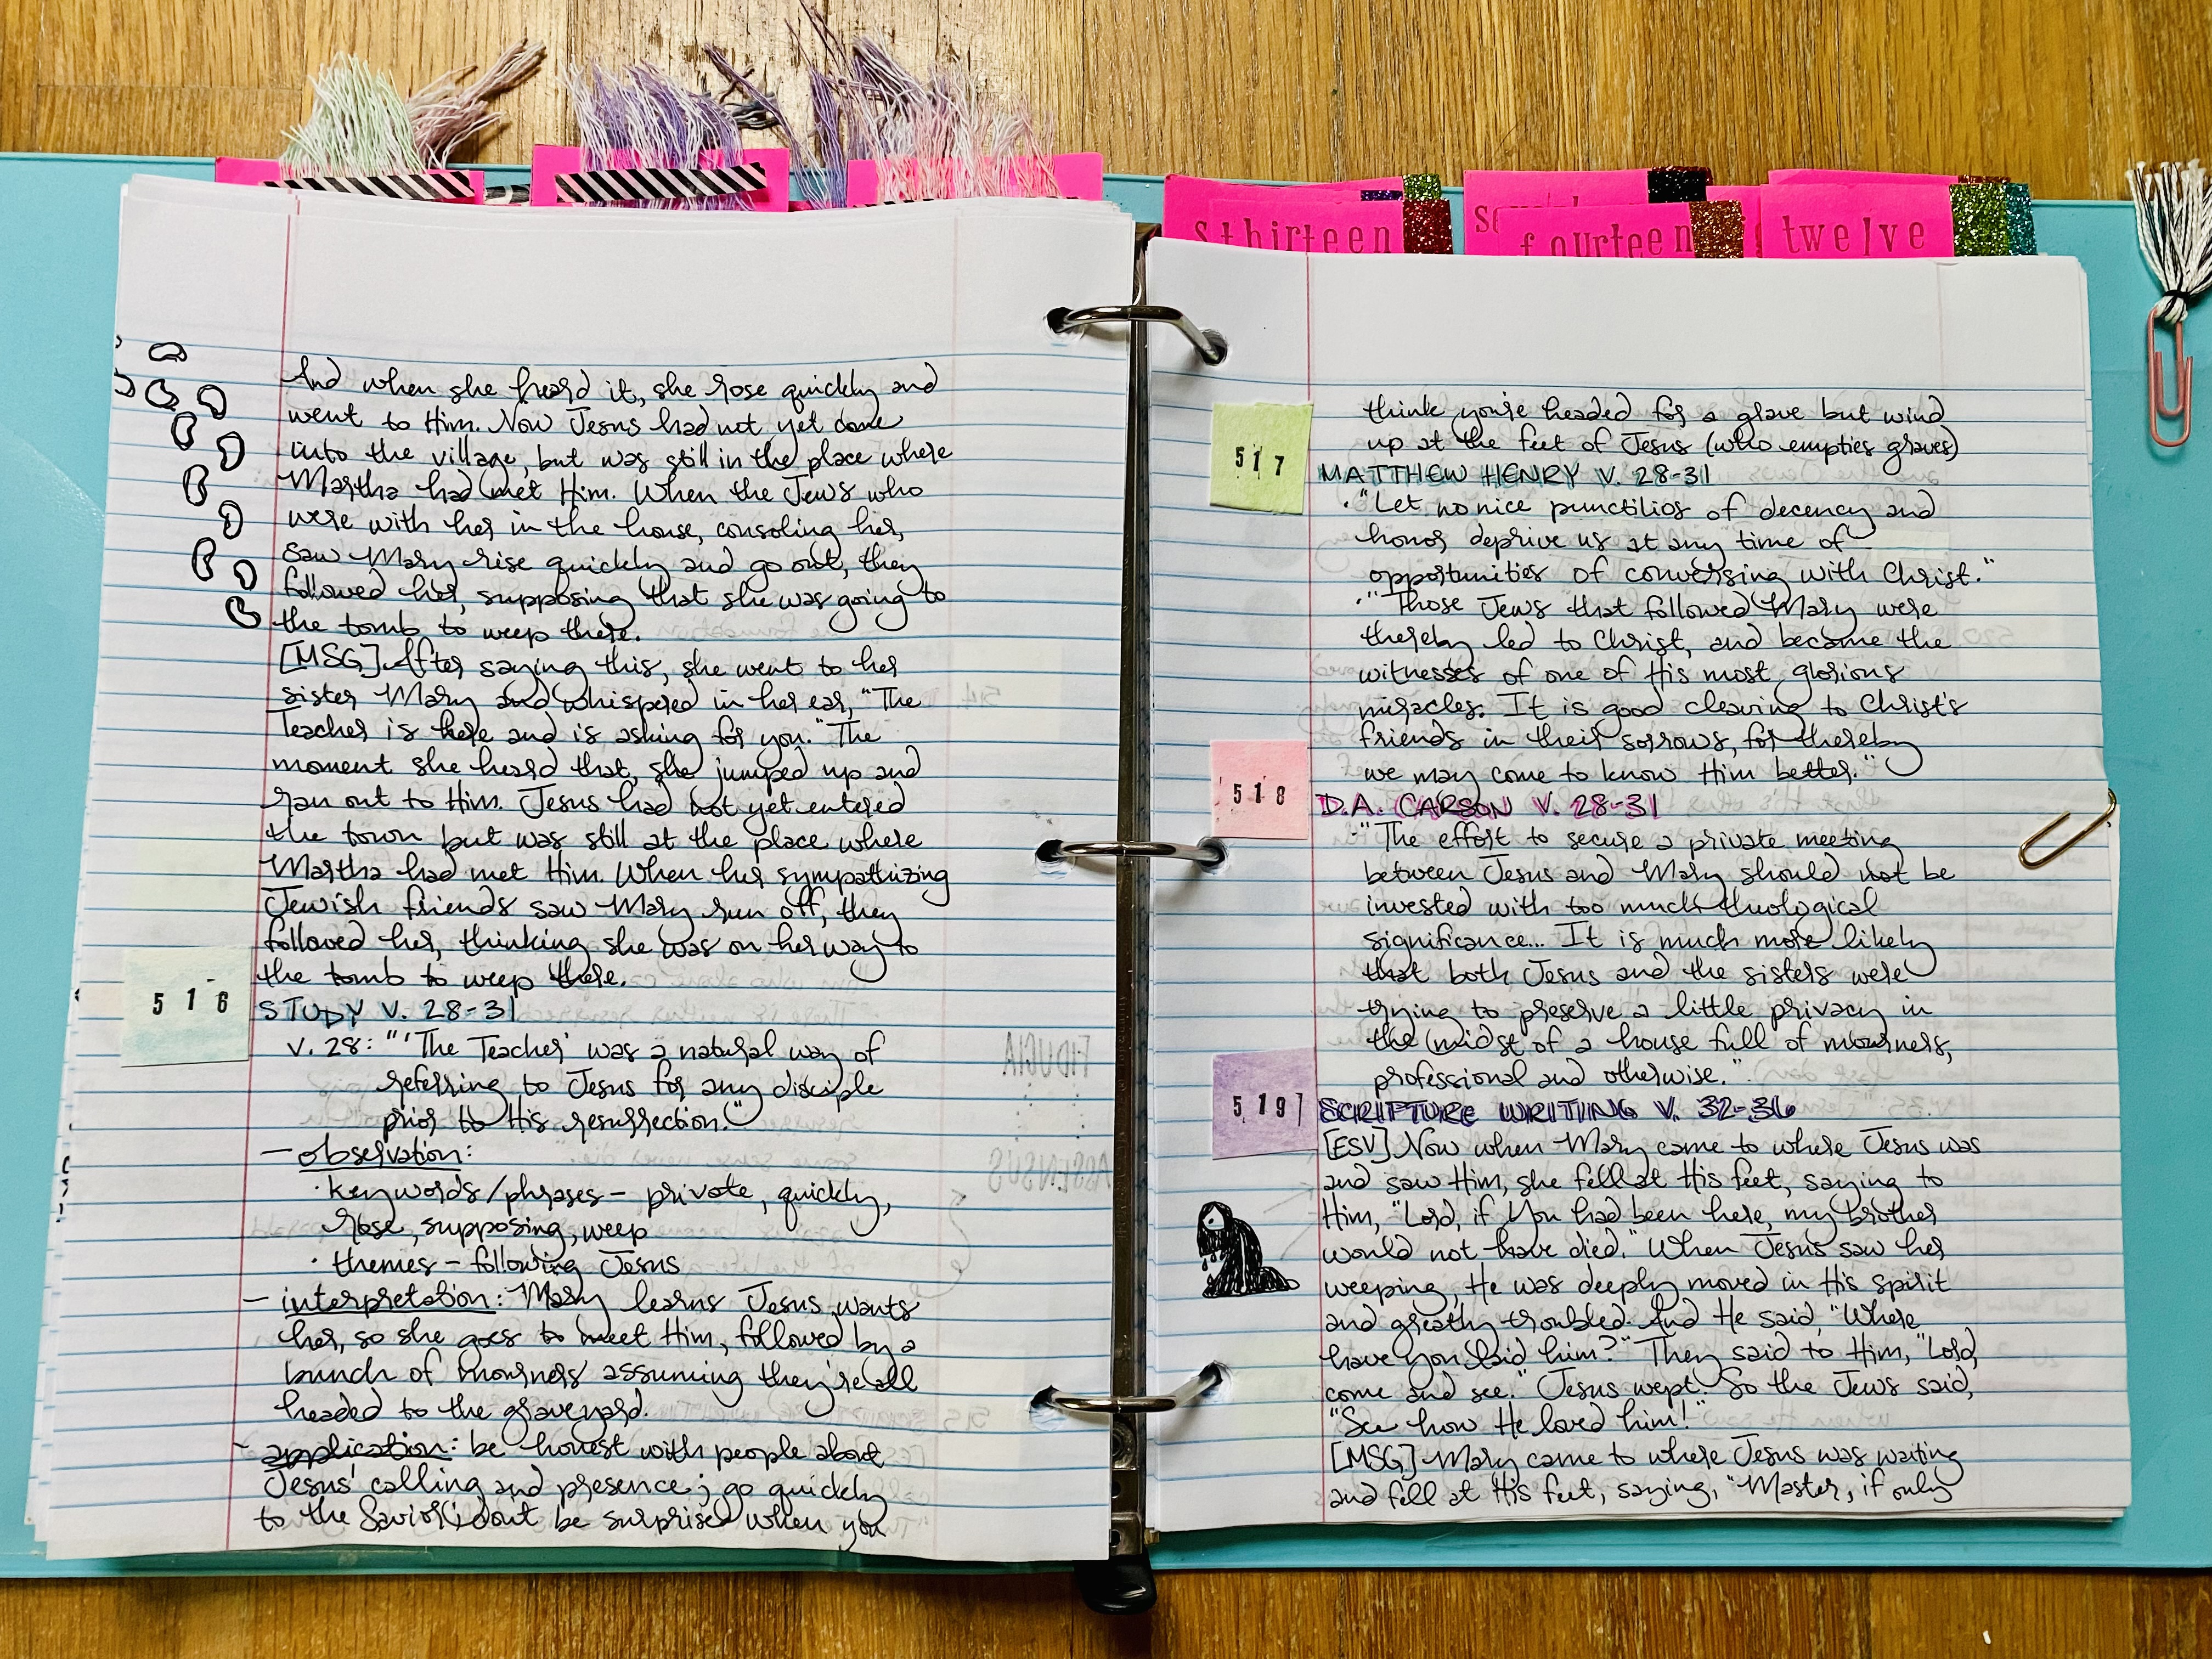 And when she heard it, she rose quickly and
went to Him. Now Jesus had not yet come
into the village, but was still in the place where
Martha had met Him. When the Jews who
were with her in the house, consoling her,
saw Mary rise quickly and go out, they
followed her, supposing that she was going to
the tomb to weep there.
[MSG] After saying this, she went to her
sister Mary and whispered in her ear, "The
Teacher is here and is asking for you." The
moment she heard that, she jumped up and
ran out to Him. Jesus had not yet entered
the town but was still at the place where
Martha had met Him. When her sympathizing
Jewish friends saw Mary run off, they
followed her, thinking she was on her way to
the tomb to weep there.
516
STUDY V. 28-31
v. 28: "'The Teacher' was a natural way of
referring to Jesus for any disciple
prior to His resurrection."
- observation:
· keywords/phrases - private, quickly,
rose, supposing, weep
· themes - following Jesus
- interpretation: Mary learns Jesus wants
her, so she goes to meet Him, followed by a
bunch of mourners assuming they're all
headed to the graveyard.
- application: be honest with people about
Jesus' calling and presence; go quickly
to the Savior; don't be surprised when you
thirteen
fourteen
twelve
think you're headed for a grave but wind
up at the feet of Jesus (who empties graves)
517
MATTHEW HENRY V. 28-31
· "Let no nice punctilios of decency and
honor deprive us at any time of
opportunities of conversing with Christ."
· "Those Jews that followed Mary were
thereby led to Christ, and became the
witnesses of one of His most glorious
miracles. It is good cleaving to Christ's
friends in their sorrows, for thereby
we may come to know Him better."
518
D.A. CARSON V. 28-31
· "The effort to secure a private meeting
between Jesus and Mary should not be
invested with too much theological
significance... It is much more likely
that both Jesus and the sisters were
trying to preserve a little privacy in
the midst of a house full of mourners,
professional and otherwise."
519
SCRIPTURE WRITING V. 32-36
[ESV] Now when Mary came to where Jesus was
and saw Him, she fell at His feet, saying to
Him, "Lord, if You had been here, my brother
would not have died." When Jesus saw her
weeping, He was deeply moved in His spirit
and greatly troubled. And He said, "Where
have you laid him?" They said to Him, "Lord,
come and see." Jesus wept. So the Jews said,
"See how He loved him!"
[MSG] Mary came to where Jesus was waiting
and fell at His feet, saying, "Master, if only